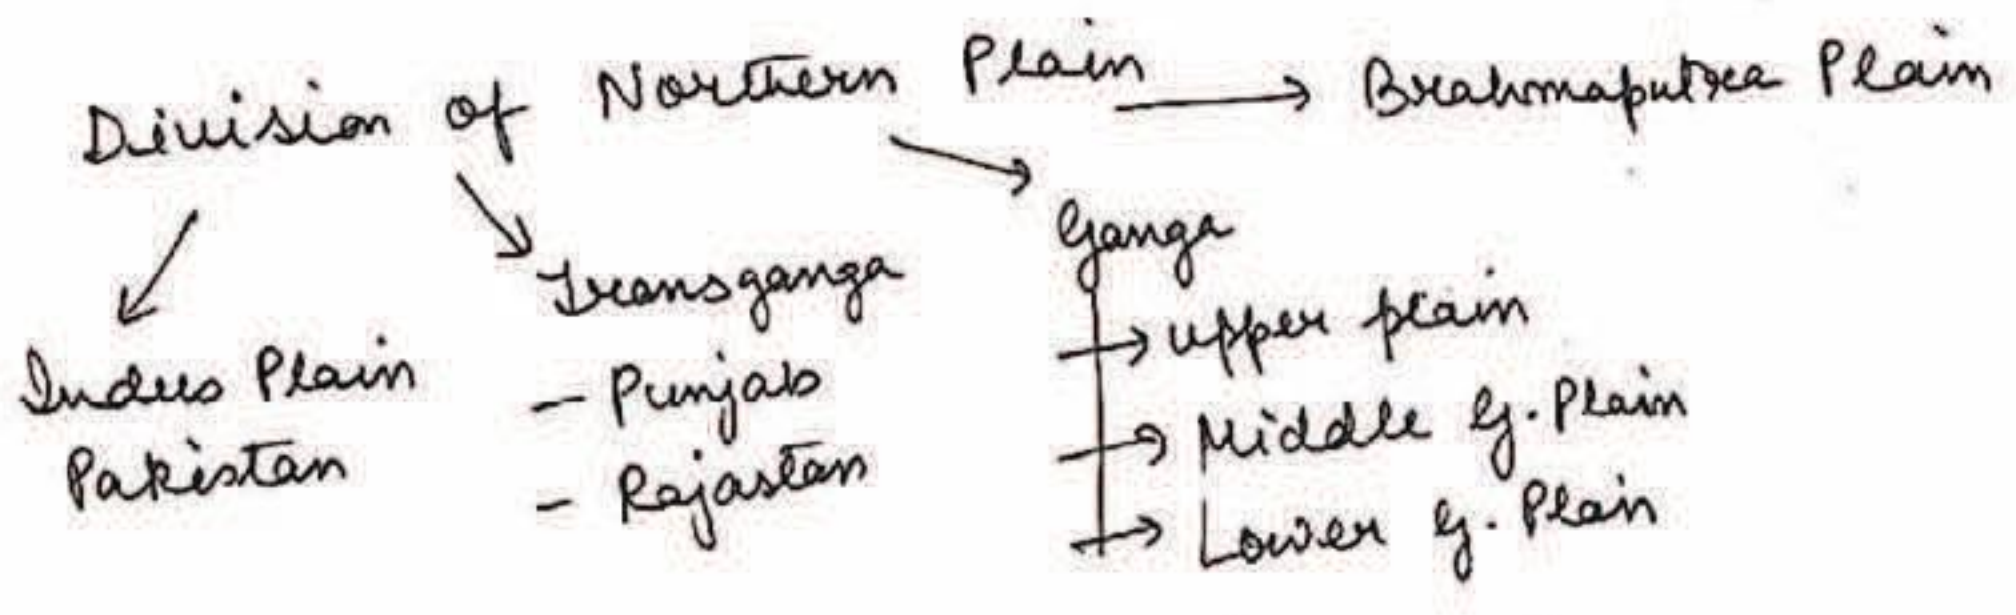 Division of Northern Plain → Brahmaputra Plain
Indus Plain
Pakistan
Transganga
- Punjab
- Rajastan
Ganga
→ upper plain
→ Middle G. Plain
→ Lower G. Plain